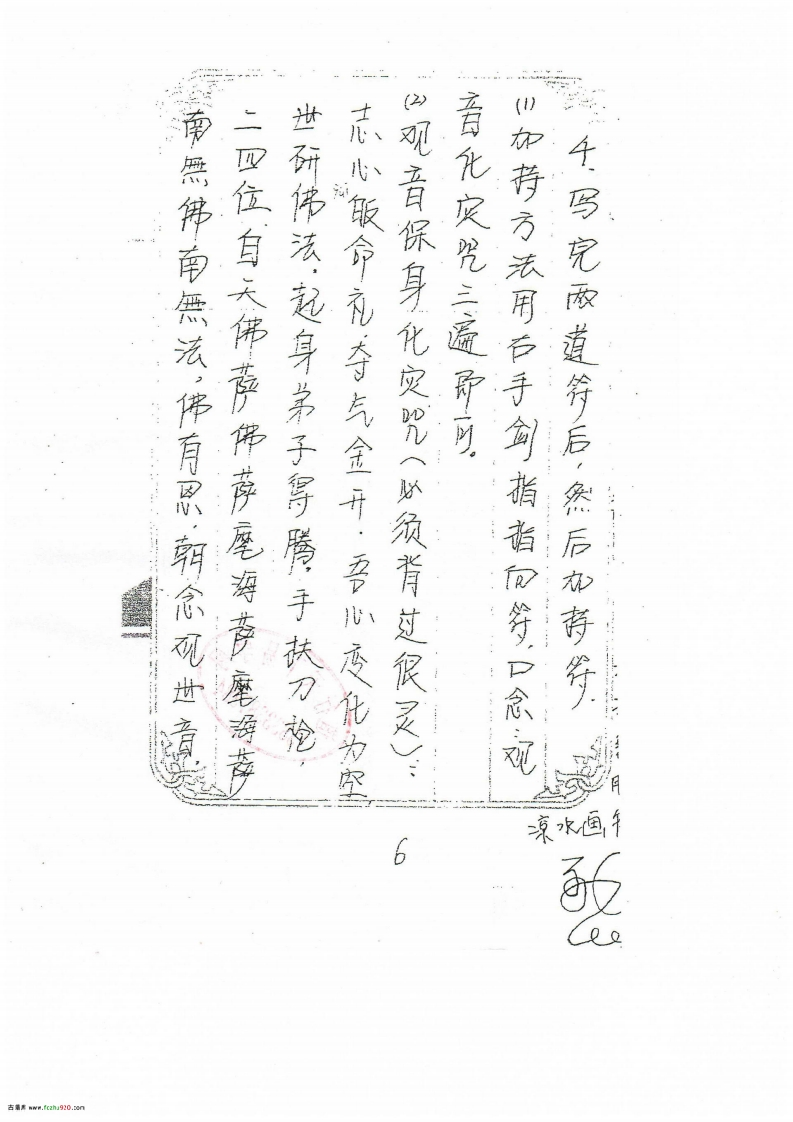 4.写完两道符后，然后加持符.
(1)加持方法用右手剑指指向符.口念.观
音化灾咒三遍即可。
(2)观音保身化灾咒(必须背过很灵):
志心皈命礼.夺气金开.吾心变化为空
世研佛法.起身弟子得腾.手扶刀枪.
二四位.自天佛萨佛萨摩海萨摩海萨
南無佛南無法.佛有恩.朝念观世音.
凉水画
6
古籍库 www.fozhu920.com